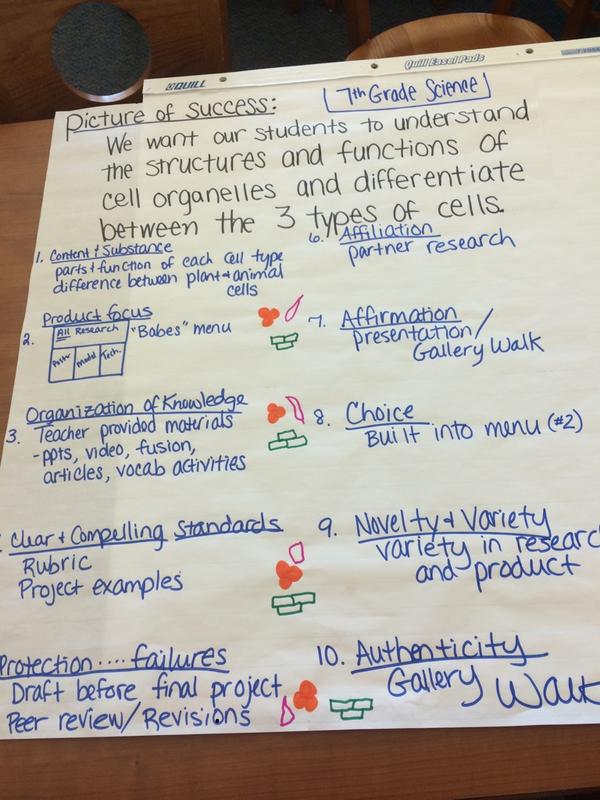 QUILL
Quill Easel Pads
7th Grade Science
Picture of Success:
We want our students to understand
the structures and functions of
cell organelles and differentiate
between the 3 types of cells.
1. Content & Substance
parts & function of each cell type
difference between plant & animal
cells
2. Product focus
All Research
"Babes" menu
Model Tech.
3. Organization of Knowledge
Teacher provided materials
-ppts, video, fusion,
articles, vocab activities
Clear & Compelling Standards
Rubric
Project examples
Protection .... failures
Draft before final project
Peer review/Revisions
6. Affiliation
partner research
7. Affirmation
presentation/
Gallery Walk
8. Choice
Built into menu (#2)
9. Novelty & Variety
variety in researc
and product
10. Authenticity
Gallery Walk